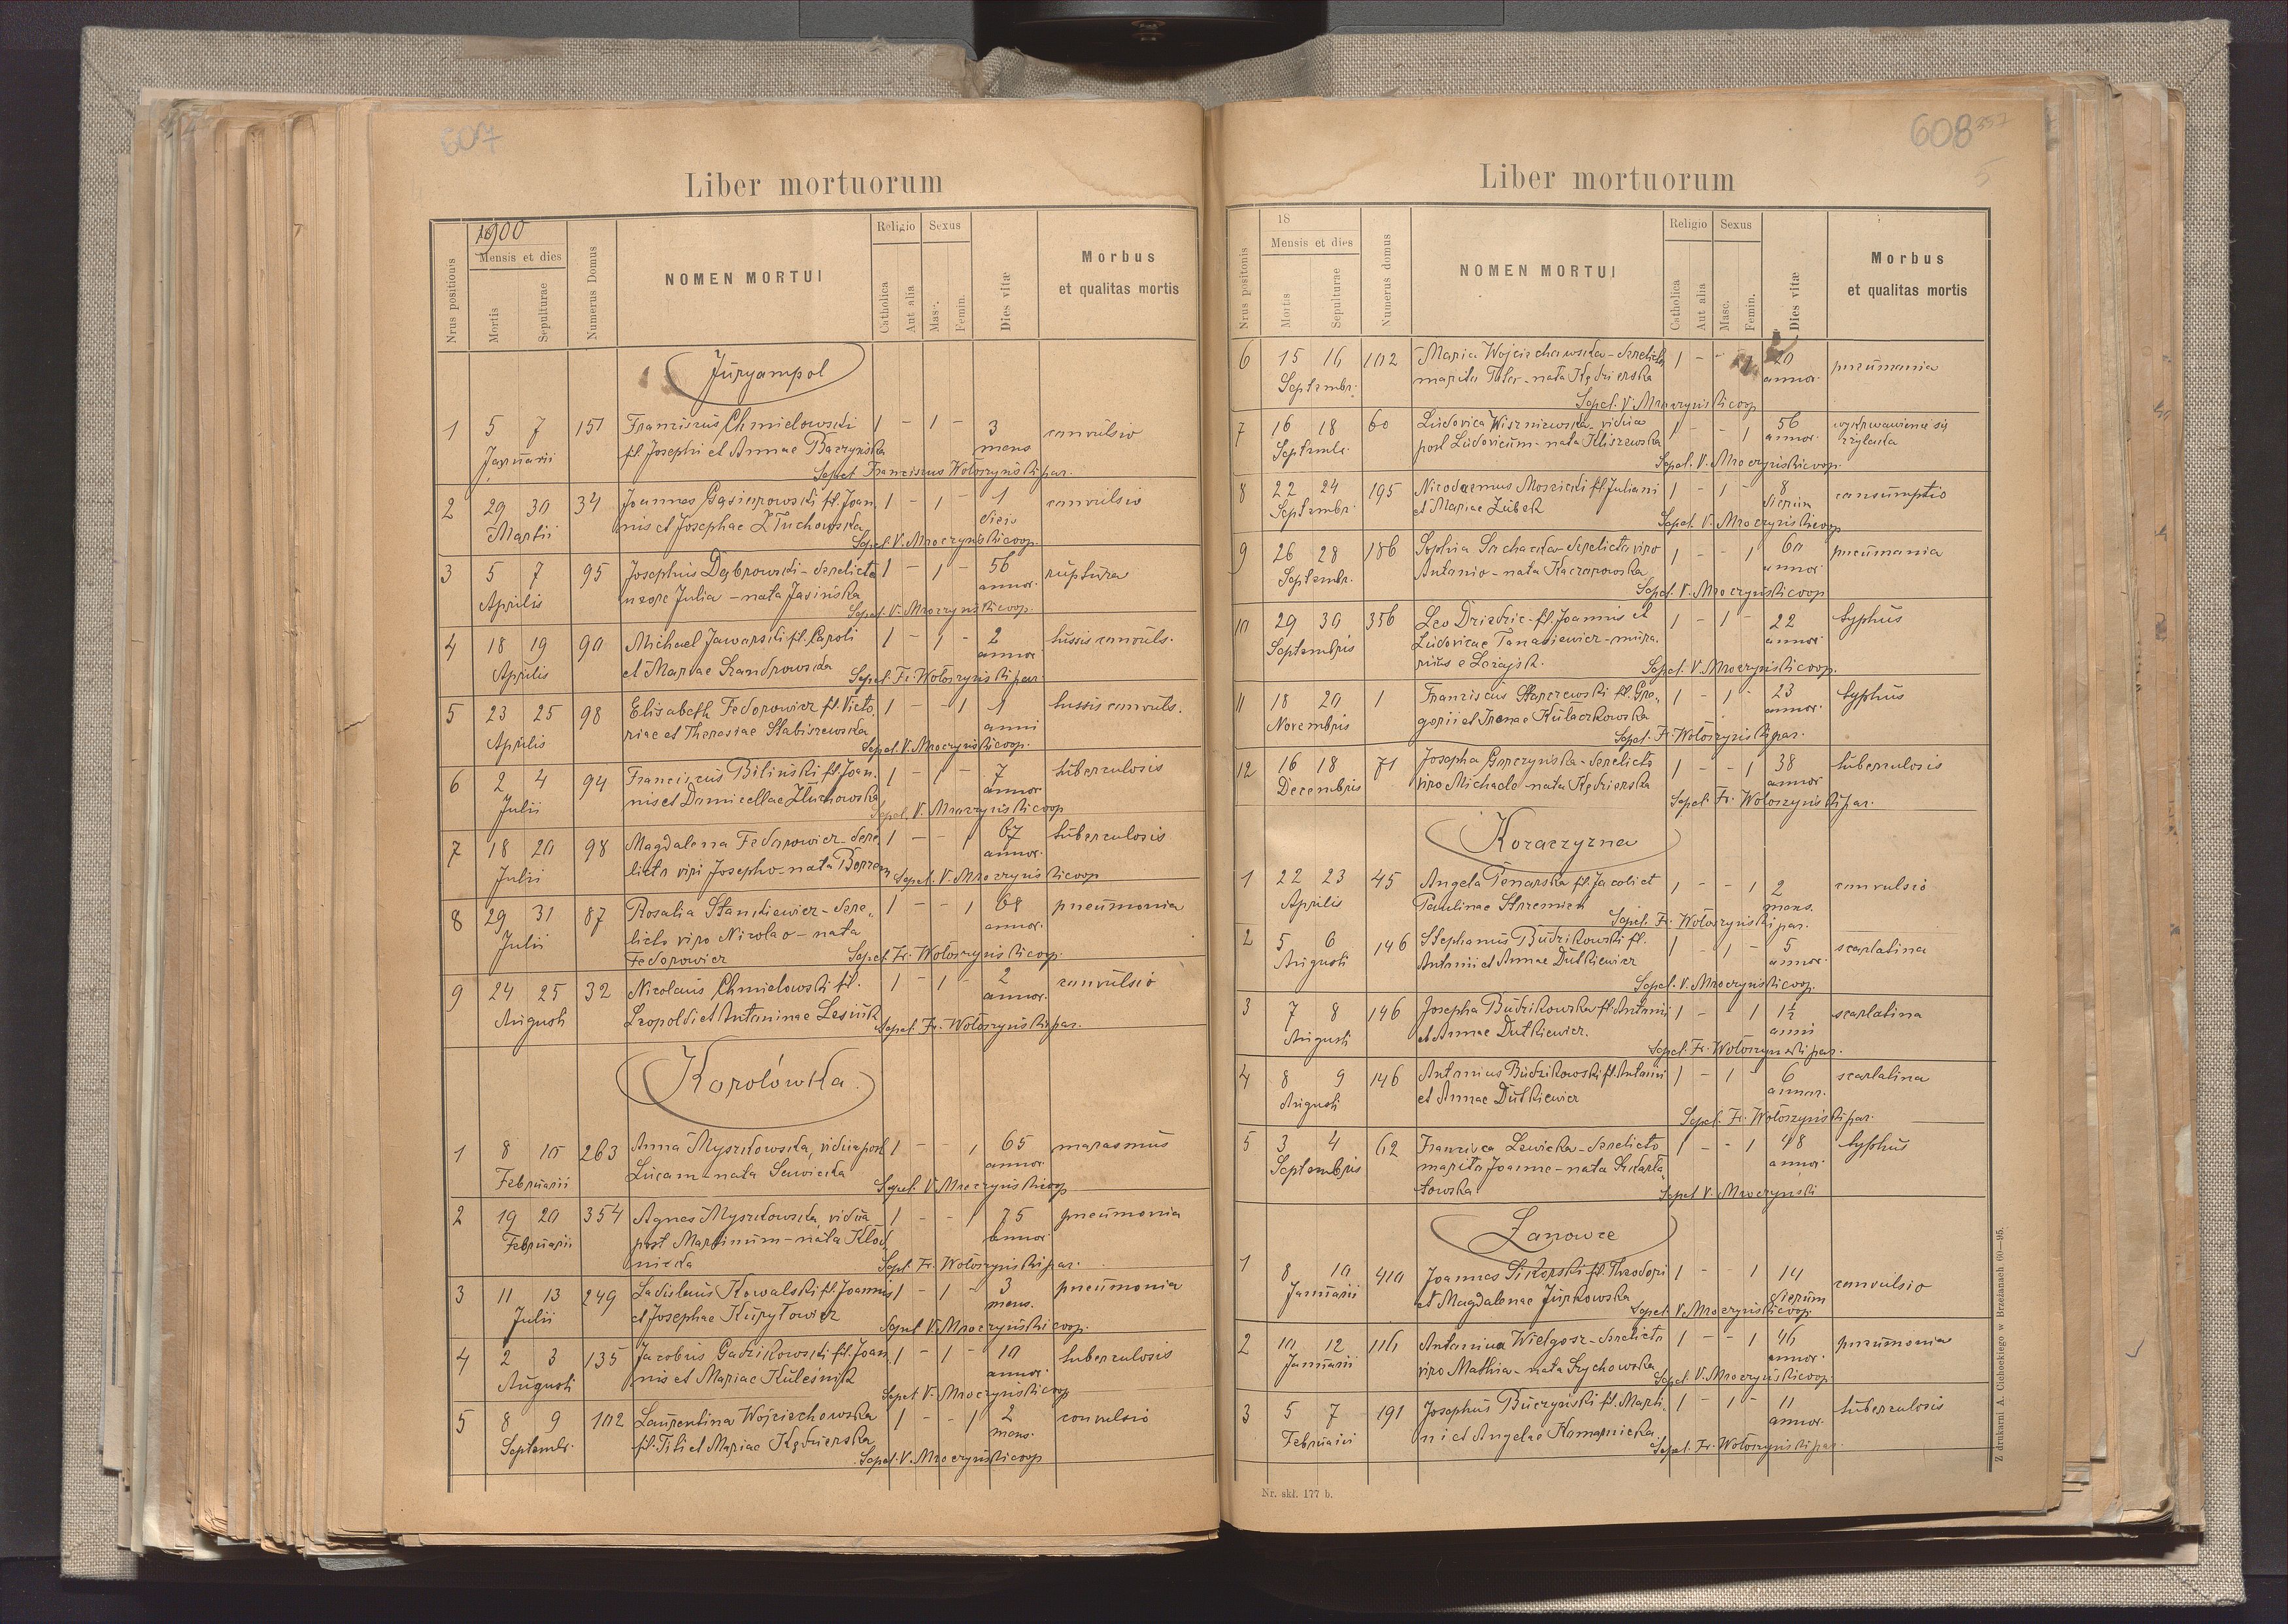 607
Liber mortuorum
1900
Religio Sexus
Mensis et dies
Nrus positionis
Mortis
Sepulturae
Numerus Domus
NOMEN MORTUI
Catholica
Aut alia
Masc.
Femin.
Dies vitæ
Morbus
et qualitas mortis
Juryampol
1 5 7 151 Franciscus Chmielowski 1 - 1 - 3 convulsio
Januarii fil. Josephi et Annae Baczyńska mens
Sepel. Franciscus Wołoszyński par.
2 29 30 34 Joannes Gąsiorowski fil. Joan 1 - 1 - 1 convulsio
Martii nis et Josephae Złuchowska diei
Sepel. V. Mroczyński coop.
3 5 7 95 Josephus Dąbrowski - derelicta 1 - 1 - 56 ruptura
Aprilis uxore Julia - nata Jasińska annor.
Sepel. V. Mroczyński coop.
4 18 19 90 Michael Jaworski fil. Caroli 1 - 1 - 2 tussis convuls.
Aprilis et Mariae Szandrowska annor
Sepel. Fr. Wołoszyński par.
5 23 25 98 Elisabeth Fedorowicz fil. Victo 1 - - 1 1 tussis convuls.
Aprilis riae et Theresiae Stabiszewska anni
Sepel. V. Mroczyński coop.
6 2 4 94 Franciscus Biliński fil. Joan. 1 - 1 - 7 tuberculosis
Julii nis et Domicellae Złuchowska annor
Sepel. V. Mroczyński coop
7 18 20 98 Magdalena Fedorowicz - dere 1 - - 1 67 tuberculosis
Julii licto viri Josepho - nata annor.
Sepel. V. Mroczyński coop
8 29 31 87 Rosalia Stankiewicz - dere 1 - - 1 68 pneumonia
Julii licto viro Nicolao - nata annor.
Fedorowicz Sepel. Fr. Wołoszyński coop.
9 24 25 32 Nicolaus Chmielowski fil. 1 - 1 - 2 convulsio
Augusti Leopoldi et Antoninae Leśnik annor.
Sepel. Fr. Wołoszyński par.
Korolówka
1 8 10 263 Anna Myszkowska, vidua post 1 - - 1 65 marasmus
Februarii Lucam - nata Sawicka annor.
Sepel. V. Mroczyński coop
2 19 20 354 Agnes Myszkowska, vidua 1 - - 1 75 pneumonia
Februarii post Martinum - nata Kłod annor
nicka Sepel. Fr. Wołoszyński par.
3 11 13 249 Ladislaus Kowalski fil. Joannis 1 - 1 - 3 pneumonia
Julii et Josephae Kuryłowicz mens.
Sepel. V. Mroczyński coop.
4 2 3 135 Jacobus Gadzikowski fil. Joan 1 - 1 - 10 tuberculosis
Augusti nis et Mariae Kuleśnik annor.
Sepel. V. Mroczyński coop
5 8 9 102 Laurentina Wojciechowska 1 - - 1 2 convulsio
Septembr. fil. Titi et Mariae Kędzierska mens.
Sepel. V. Mroczyński coop
608 357
5
Liber mortuorum
18
Religio Sexus
Mensis et dies
Nrus positonis
Mortis
Sepulturae
Numerus domus
NOMEN MORTUI
Catholica
Aut alia
Masc.
Femin.
Dies vitæ
Morbus
et qualitas mortis
6 15 16 102 Maria Wojciechowska - derelicto 1 - - 1 20 pneumonia
Septembr. marito Tito - nata Kędzierska annor.
Sepel. V. Mroczyński coop
7 16 18 60 Ludovica Wiszniewska - vidua 1 - - 1 56 wykrwawienie się
Septembr. post Ludovicum - nata Kliszewska annor.
Sepel. V. Mroczyński coop.
8 22 24 195 Nicodaemus Moszicki fil. Juliani 1 - 1 - 8 consumptio
Septembr et Mariae Zubek dierum
Sepel. V. Mroczyński coop
9 26 28 186 Sophia Suchacka - derelicta viro 1 - - 1 60 pneumonia
Septembr. Antonio - nata Kaczorowska annor.
Sepel. V. Mroczyński coop
10 29 30 356 Leo Dziedzic - fil. Joannis et 1 - 1 - 22 typhus
Septembris Ludovicae Tanasiewicz - mura annor.
rius e Leżajsk. Sepel. V. Mroczyński coop.
11 18 20 1 Franciscus Starczewski fil. Gre 1 - 1 - 23 typhus
Novembris gorii et Irenae Kułaczkowska annor.
Sepel. Fr. Wołoszyński par.
12 16 18 71 Josepha Gorczyńska - derelicto 1 - - 1 38 tuberculosis
Decembris viro Michaele - nata Kędzierska annor
Sepel. Fr. Wołoszyński par.
Kozaczyzna
1 22 23 45 Angela Tenarska fil. Jacobi et 1 - - 1 2 convulsio
Aprilis Paulinae Strzemień mens.
Sepel. Fr. Wołoszyński par.
2 5 6 146 Stephanus Budzikowski fil. 1 - 1 - 5 scarlatina
Augusti Antonii et Annae Dutkiewicz annor.
Sepel. V. Mroczyński coop.
3 7 8 146 Josepha Budzikowska fil. Antonii 1 - 1 1½ scarlatina
Augusti et Annae Dutkiewicz. anni
Sepel. Fr. Wołoszyński par.
4 8 9 146 Antonius Budzikowski fil. Antonii 1 - 1 - 6 scarlatina
Augusti et Annae Dutkiewicz annor.
Sepel. Fr. Wołoszyński par.
5 3 4 62 Francisca Lewicka - derelicto 1 - - 1 48 typhus
Septembris marito Joanne - nata annor.
Sepel V. Mroczyński
Łanowce
1 8 10 410 Joannes Sikorski fil. Theodori 1 - - 1 14 convulsio
Januarii et Magdalenae Jurkowska dierum
Sepel. V. Mroczyński coop.
2 10 12 116 Antonina Wielgosz - derelicto 1 - - 1 46 pneumonia
Januarii viro Mathia - nata Łychowska annor.
Sepel. V. Mroczyński coop.
3 5 7 191 Josephus Buczyński fil. Marti 1 - 1 - 11 tuberculosis
Februarii ni et Angelae Komarnicka annor.
Sepel. Fr. Wołoszyński par.
Nr. skł. 177 b.
Z drukarni A. Cichockiego w Brzeżanach 60—95.